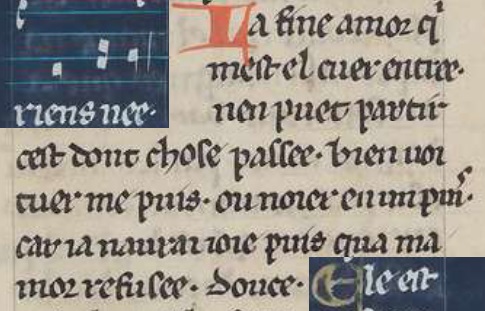 La fine amor q̃
mest el cuer entree.
riens nee. nen puet partir
cest dont chose passee. bien uoi
tuer me puis. ou noier en un puis.
car ia naurai ioie puis qua ma
mor refusee. Douce. Ele est